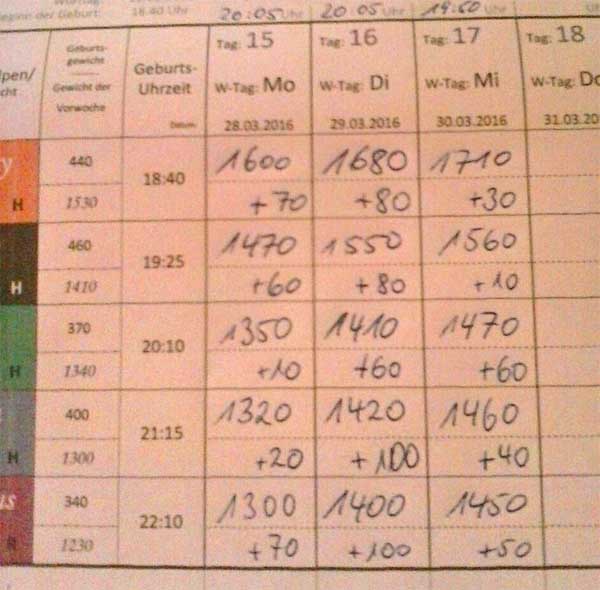 eginn der Geburt: 18:40 Uhr 20:05 Uhr 20 05 Uhr 19:50 Uhr
lpen/ Geburts- Tag: 15 Tag: 16 Tag: 17 Tag: 18
gewicht Geburts-
cht Gewicht der Uhrzeit W-Tag: Mo W-Tag: Di W-Tag: Mi W-Tag: Do
Vorwoche
Datum: 28.03.2016 29.03.2016 30.03.2016 31.03.20
y 440 18:40 1600 1680 1710
H 1530 +70 +80 +30
460 19:25 1470 1550 1560
H 1410 +60 +80 +10
370 20:10 1350 1410 1470
H 1340 +10 +60 +60
400 21:15 1320 1420 1460
H 1300 +20 +100 +40
us 340 22:10 1300 1400 1450
1230 +70 +100 +50